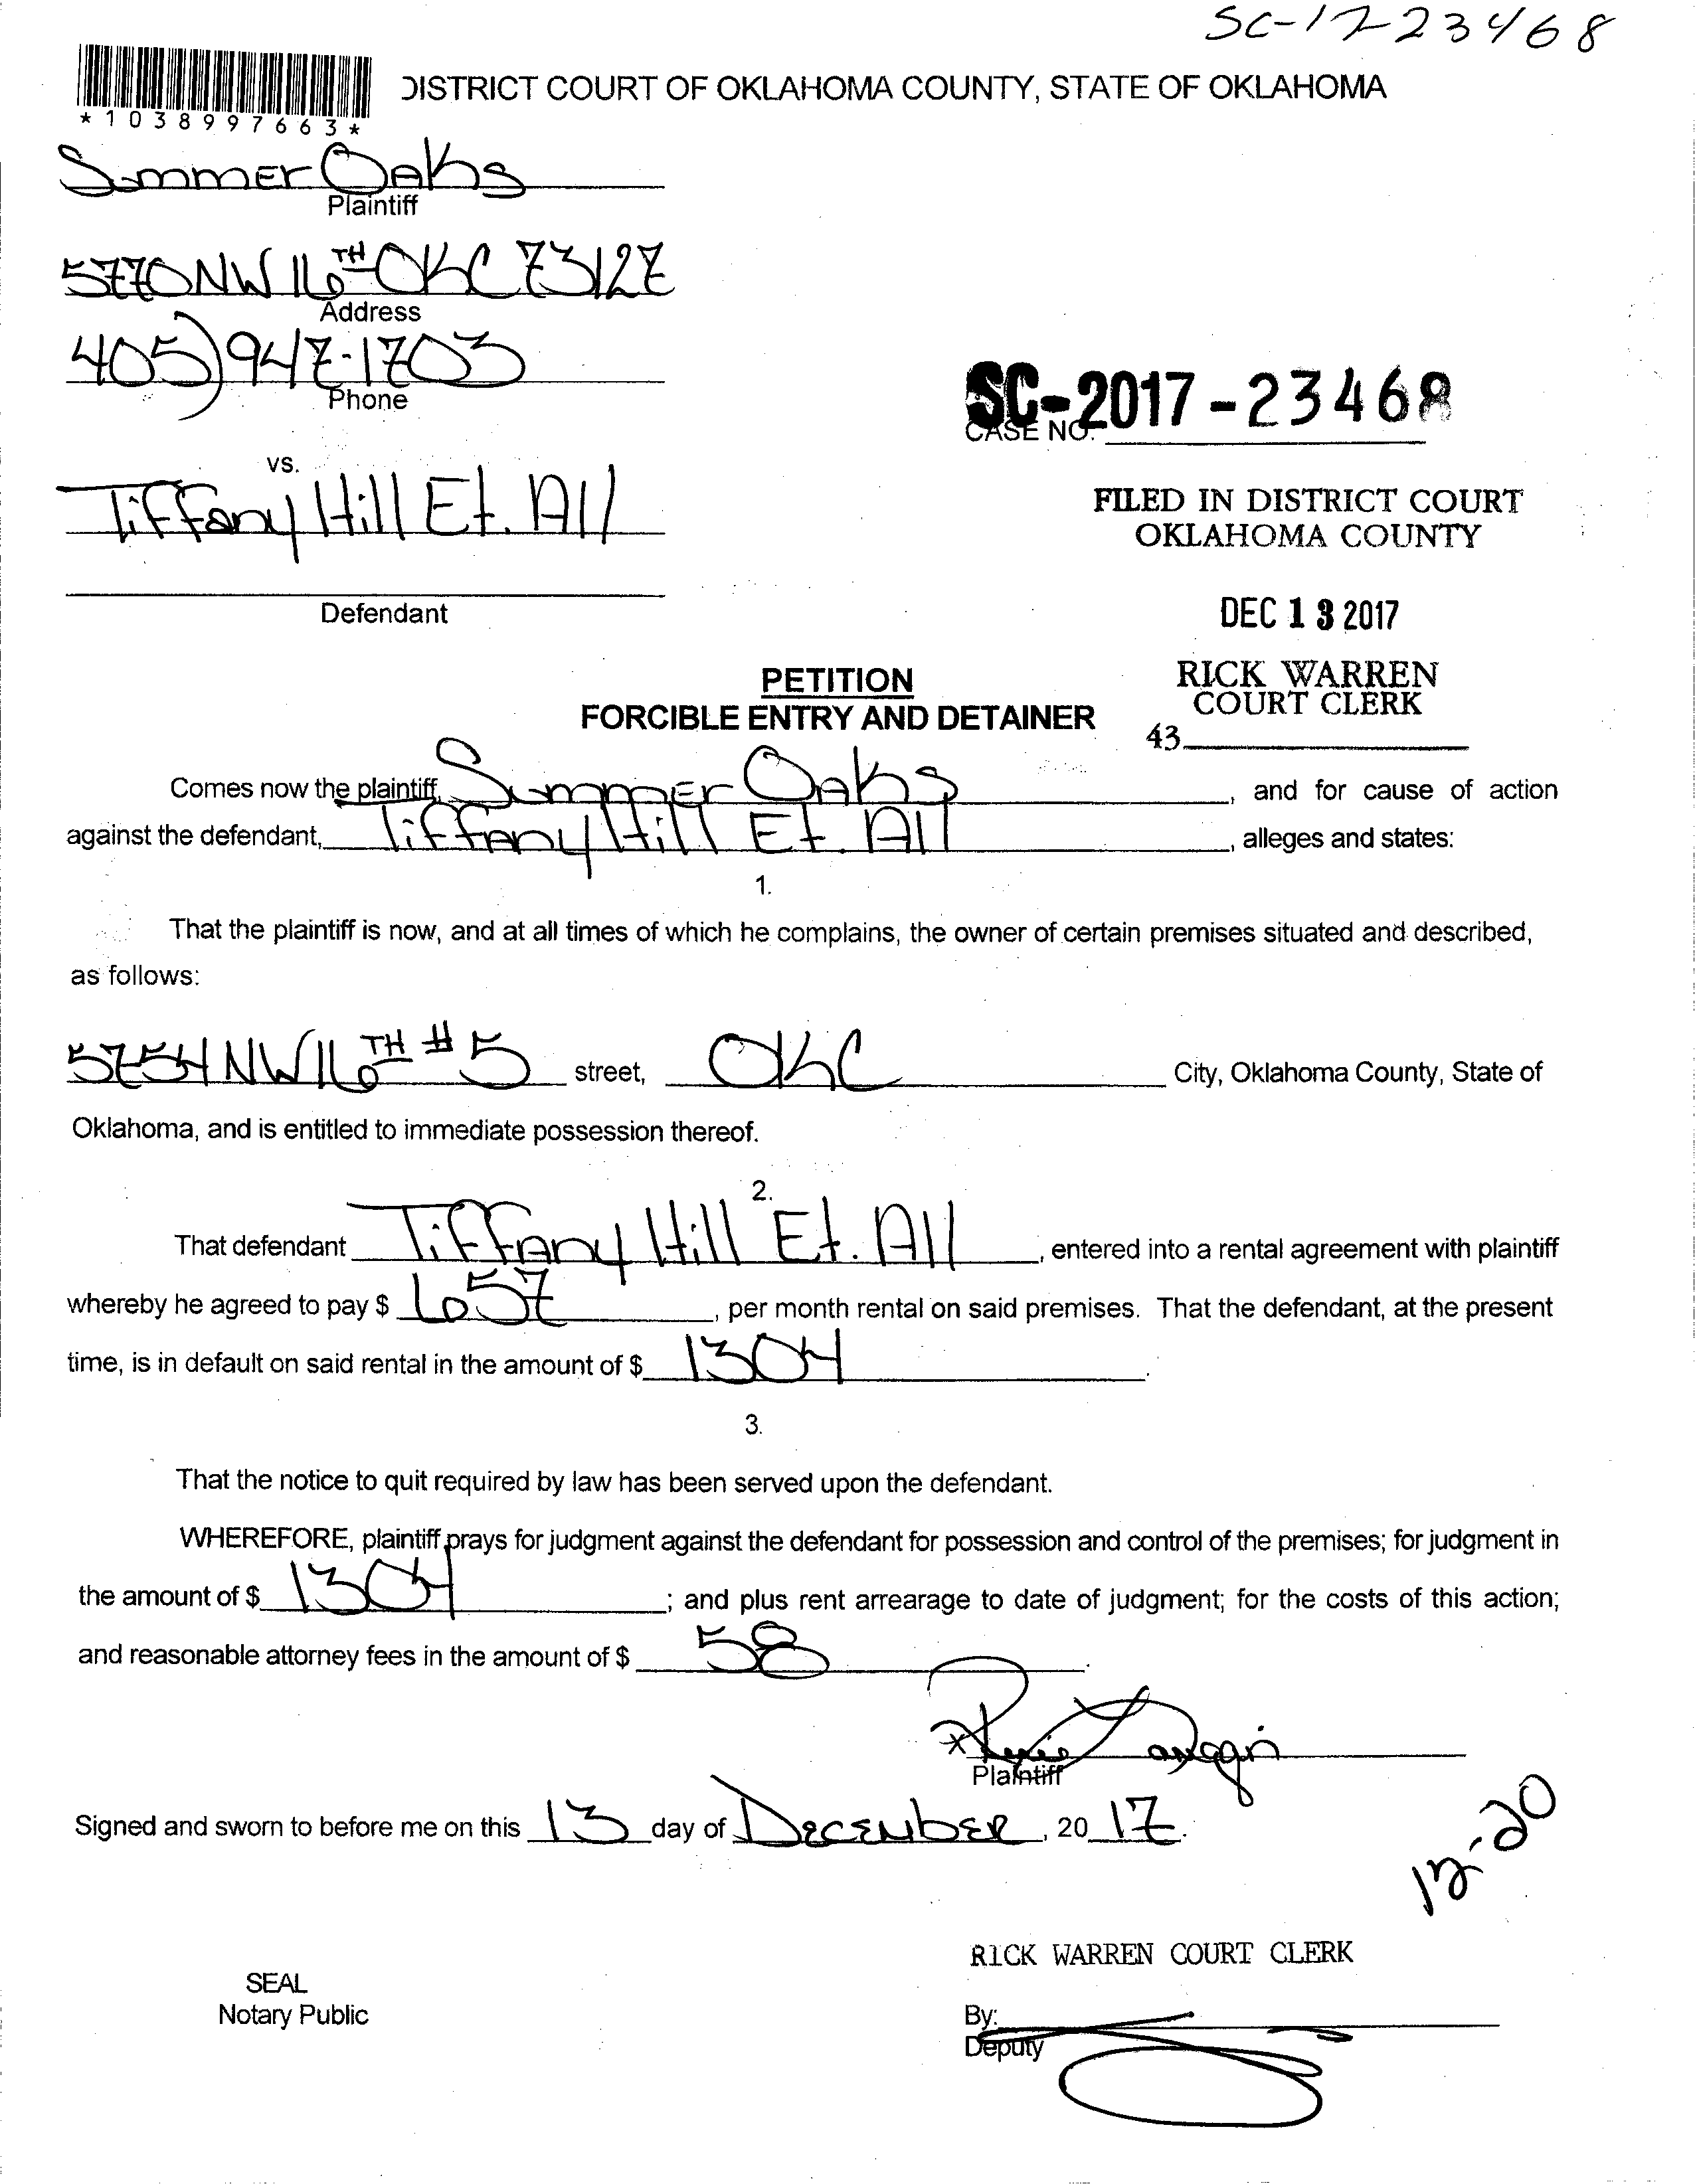 SC-17-23468
*1038997663*
DISTRICT COURT OF OKLAHOMA COUNTY, STATE OF OKLAHOMA
Summer Oaks
Plaintiff
5770 NW 16TH OKC 73127
Address
405) 947-1703
Phone
SC-2017-23468
CASE NO.
vs.
Tiffany Hill Et. All
FILED IN DISTRICT COURT
OKLAHOMA COUNTY
Defendant
DEC 13 2017
PETITION
FORCIBLE ENTRY AND DETAINER
RICK WARREN
COURT CLERK
43
Comes now the plaintiff, Summer Oaks, and for cause of action
against the defendant, Tiffany Hill Et. All, alleges and states:
1.
That the plaintiff is now, and at all times of which he complains, the owner of certain premises situated and described,
as follows:
5754 NW 16TH #5 street, OKC City, Oklahoma County, State of
Oklahoma, and is entitled to immediate possession thereof.
2.
That defendant Tiffany Hill Et. All, entered into a rental agreement with plaintiff
whereby he agreed to pay $ 657, per month rental on said premises. That the defendant, at the present
time, is in default on said rental in the amount of $ 1304.
3.
That the notice to quit required by law has been served upon the defendant.
WHEREFORE, plaintiff prays for judgment against the defendant for possession and control of the premises; for judgment in
the amount of $ 1304; and plus rent arrearage to date of judgment; for the costs of this action;
and reasonable attorney fees in the amount of $ 58.
Plaintiff
Signed and sworn to before me on this 13 day of December, 20 17.
12-20
RICK WARREN COURT CLERK
SEAL
Notary Public
By:
Deputy